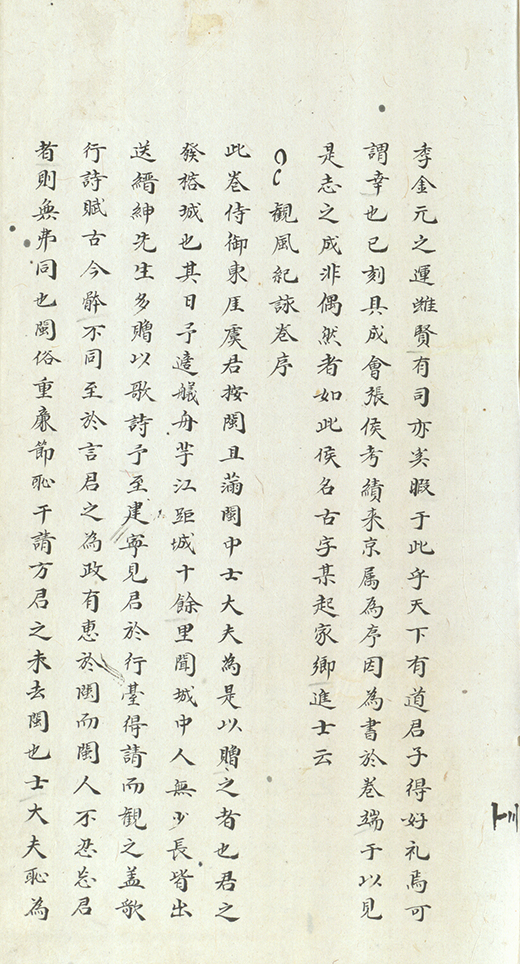 李金元之運雖賢有司亦奚暇于此乎天下有道君子得好礼焉可
謂幸也已刻具成會張侯考績来京属為序因為書於卷端于以見
是志之成非偶然者如此侯名古字某起家鄉進士云
觀風紀詠卷序
此卷侍御東厓虞君按閩且滿閩中士大夫為是以贈之者也君之
發榕城也其日予造艤舟芋江距城十餘里聞城中人無少長皆出
送縉紳先生多贈以歌詩予至建寧見君於行臺得請而觀之盖歌
行詩賦古今骵不同至於言君之為政有惠於閩而閩人不忍忘君
者則無弗同也閩俗重廉節恥干請方君之未去閩也士大夫恥為